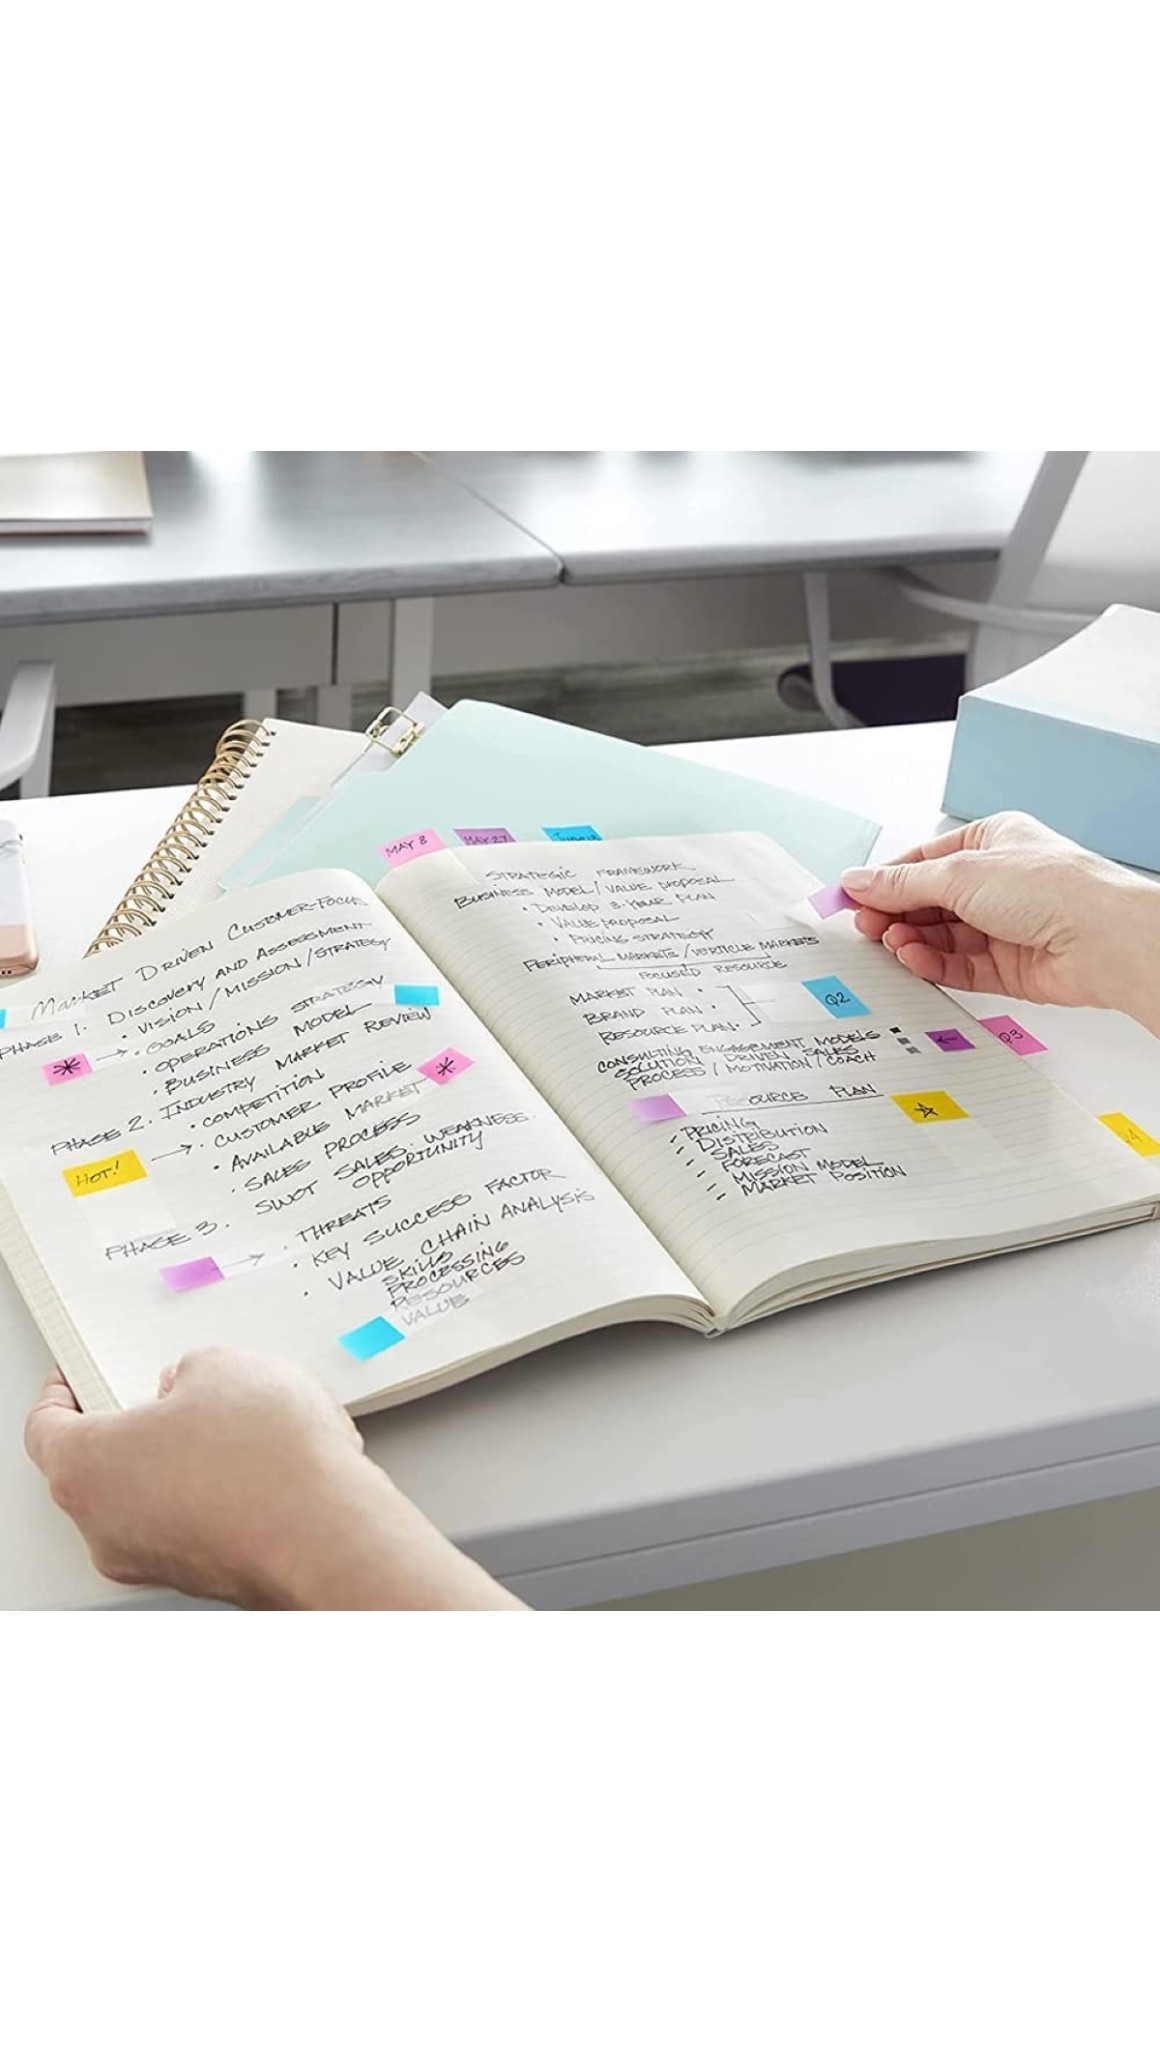 MAY 8
MAY 27
MARKET DRIVEN CUSTOMER-FOCUS
PHASE 1. DISCOVERY AND ASSESSMENT
• VISION / MISSION / STRATEGY
* → • GOALS
• OPERATIONS STRATEGY
• BUSINESS MODEL
PHASE 2. INDUSTRY MARKET REVIEW
• COMPETITION
HOT! → • CUSTOMER PROFILE *
• AVAILABLE MARKET
• SALES PROCESS
SWOT SALES: WEAKNESS
OPPORTUNITY
PHASE 3. • THREATS
→ • KEY SUCCESS FACTOR
• VALUE CHAIN ANALYSIS
SKILLS
PROCESSING
RESOURCES
VALUE
STRATEGIC FRAMEWORK
BUSINESS MODEL / VALUE PROPOSAL
• DEVELOP 3-YEAR PLAN
• VALUE PROPOSAL
• PRICING STRATEGY
PERIPHERAL MARKETS / VERTICLE MARKETS
FOCUSED RESOURCE
MARKET PLAN •
BRAND PLAN • Q2
RESOURCE PLAN •
CONSULTING ENGAGEMENT MODELS ← Q3
SOLUTION DRIVEN SALES
PROCESS / MOTIVATION / COACH
RESOURCE PLAN
- PRICING
- DISTRIBUTION
- SALES
- FORECAST
- MISSION MODEL
- MARKET POSITION